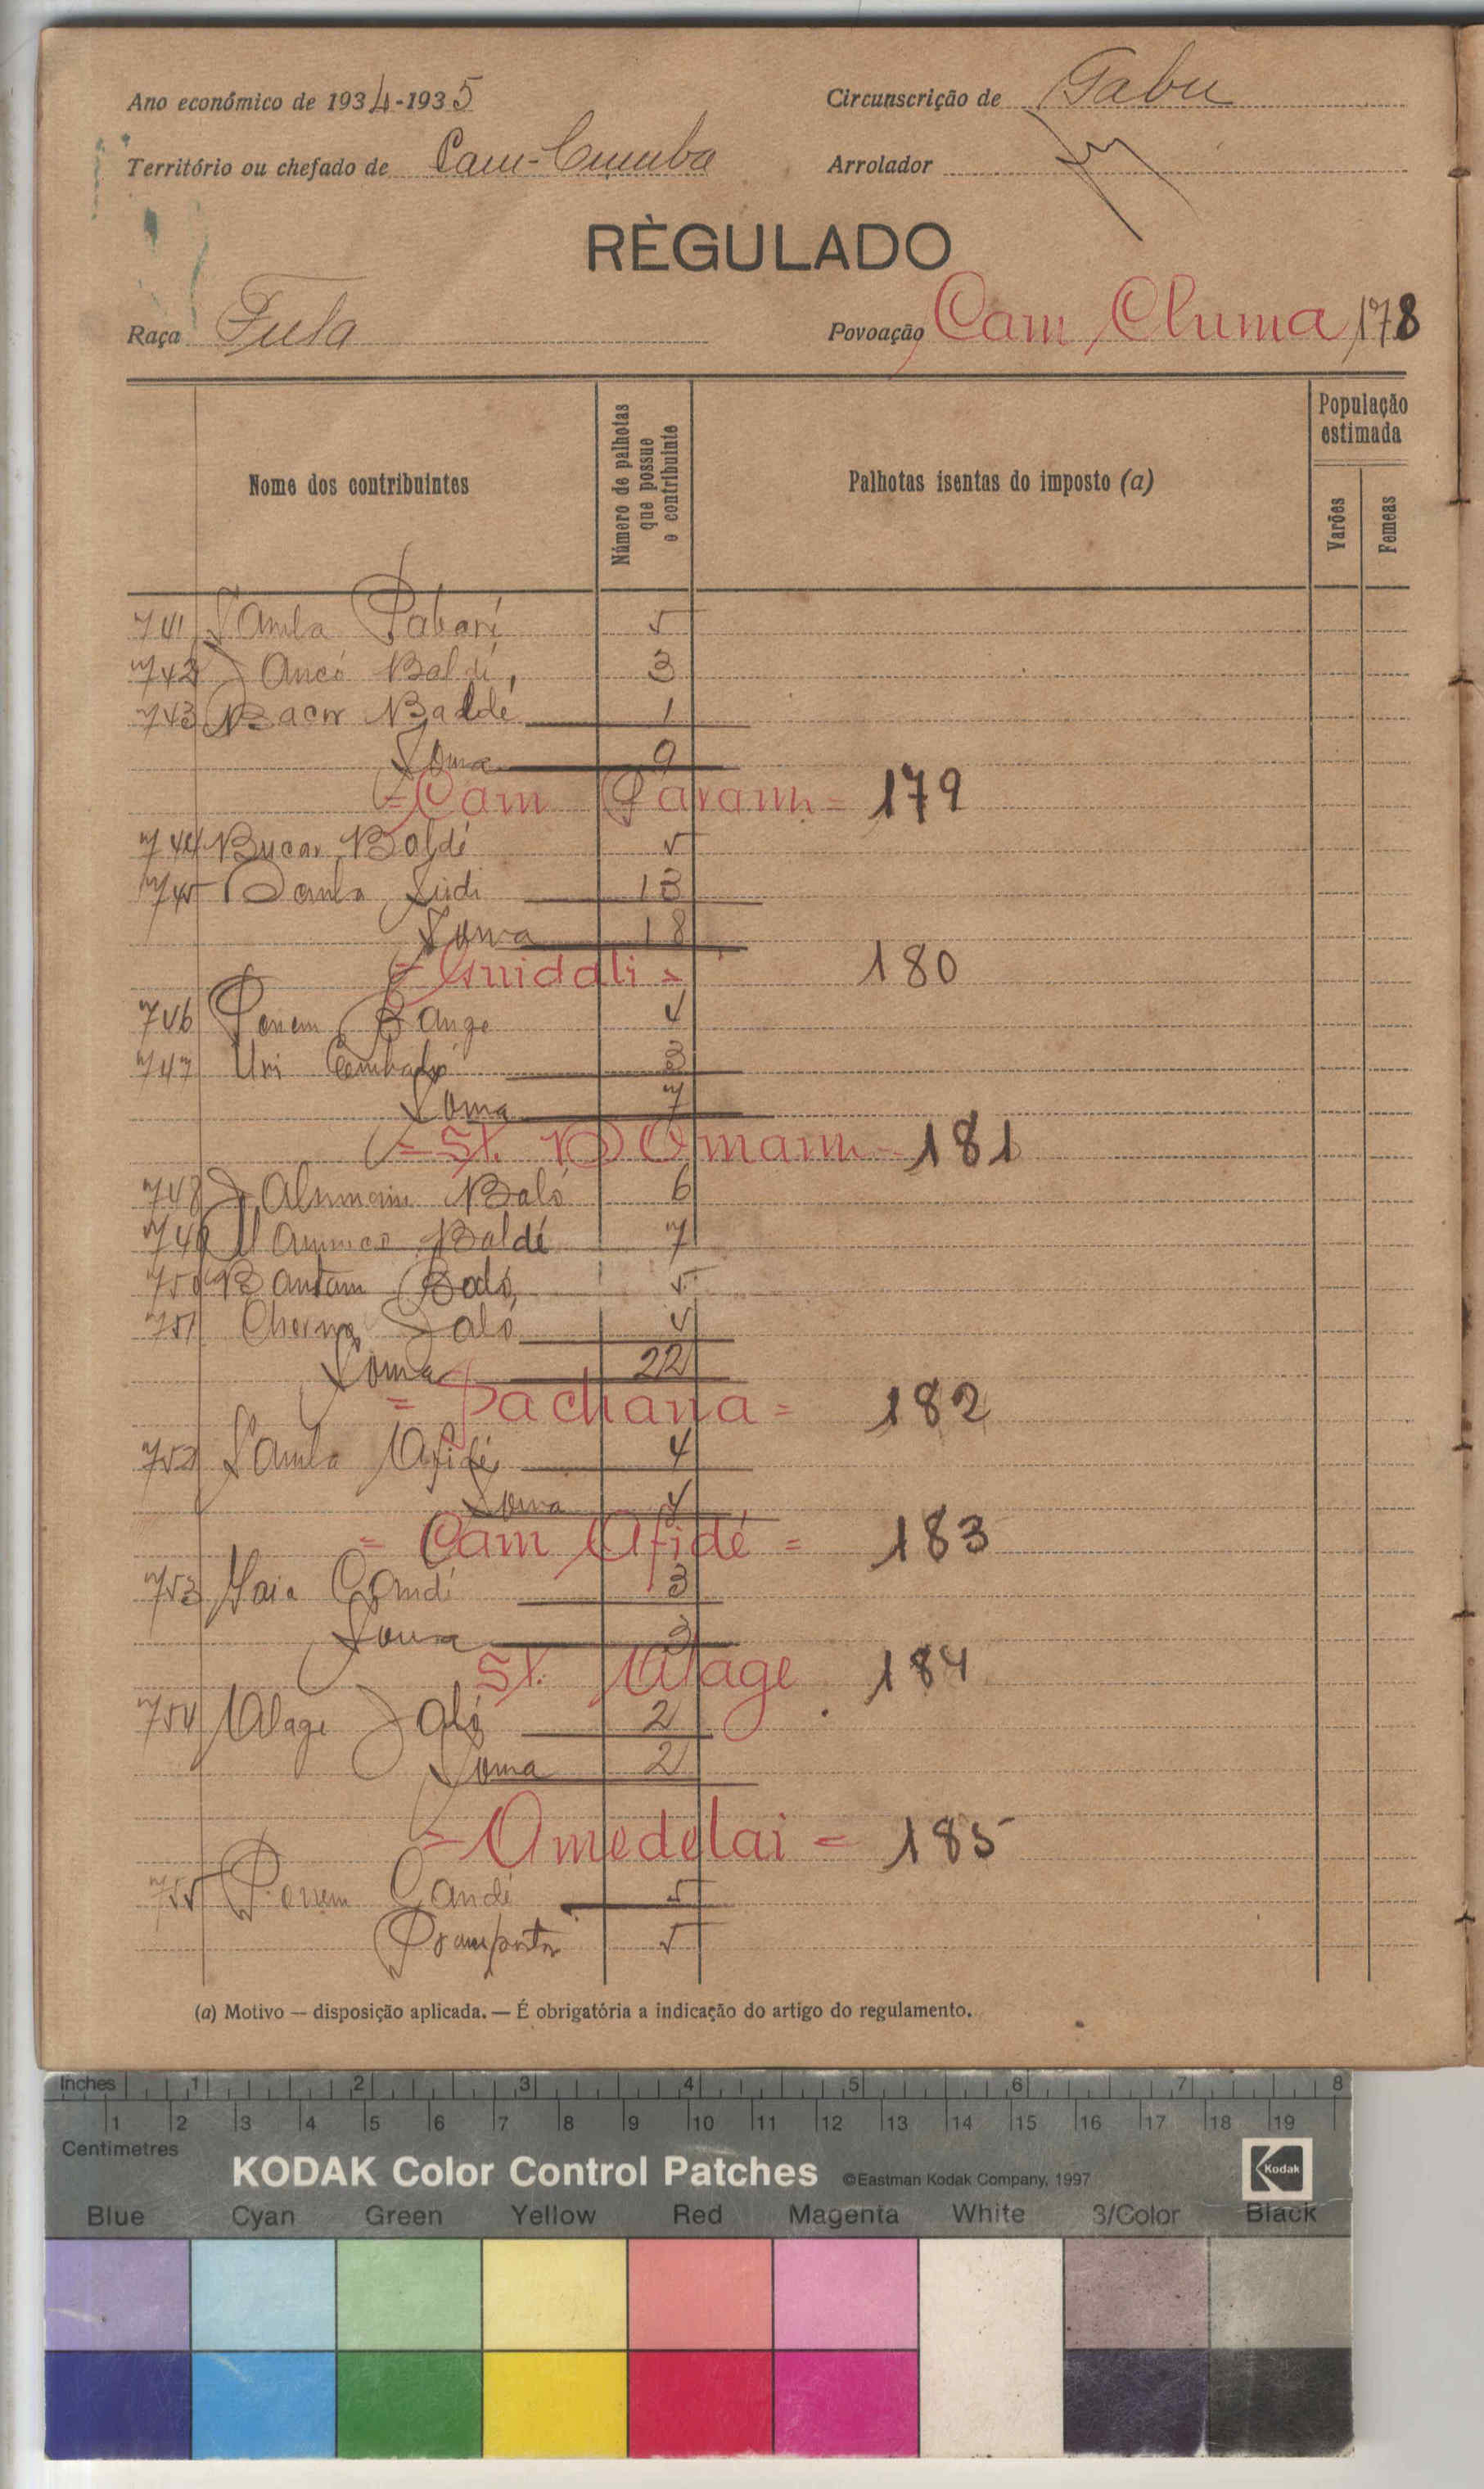 Ano económico de 1934-1935
Circunscrição de Gabu
Território ou chefado de Cam-Cumba
Arrolador
RÈGULADO
Raça Fula
Povoação Cam Chuma 178
Nome dos contribuintes
Número de palhotas que possue o contribuinte
Palhotas isentas do imposto (a)
População estimada
Varões
Femeas
741 Samba 5
742 Baldé, 3
743 Baldé 1
Soma 9
= Cam = 179
744 Bucar Baldé 5
745 Samba Sidi 13
Soma 18
= Guidali = 180
746 4
747 Uri 3
Soma 7
= St. 181
748 Baló 6
749 Baldé 7
750 Bantam 5
751 Cherno Jaló 4
Soma 22
= Pachana = 182
752 Samba Afidé 4
Soma 4
= Cam Afidé = 183
753 Iaia Candé 3
Soma 3
St. Alage 184
754 Alage Jaló 2
Soma 2
= Omedelai = 185
755 Candé 5
Transporta 5
(a) Motivo — disposição aplicada. — É obrigatória a indicação do artigo do regulamento.
Inches 1 2 3 4 5 6 7 8
1 2 3 4 5 6 7 8 9 10 11 12 13 14 15 16 17 18 19
Centimetres
KODAK Color Control Patches ©Eastman Kodak Company, 1997 Kodak
Blue Cyan Green Yellow Red Magenta White 3/Color Black